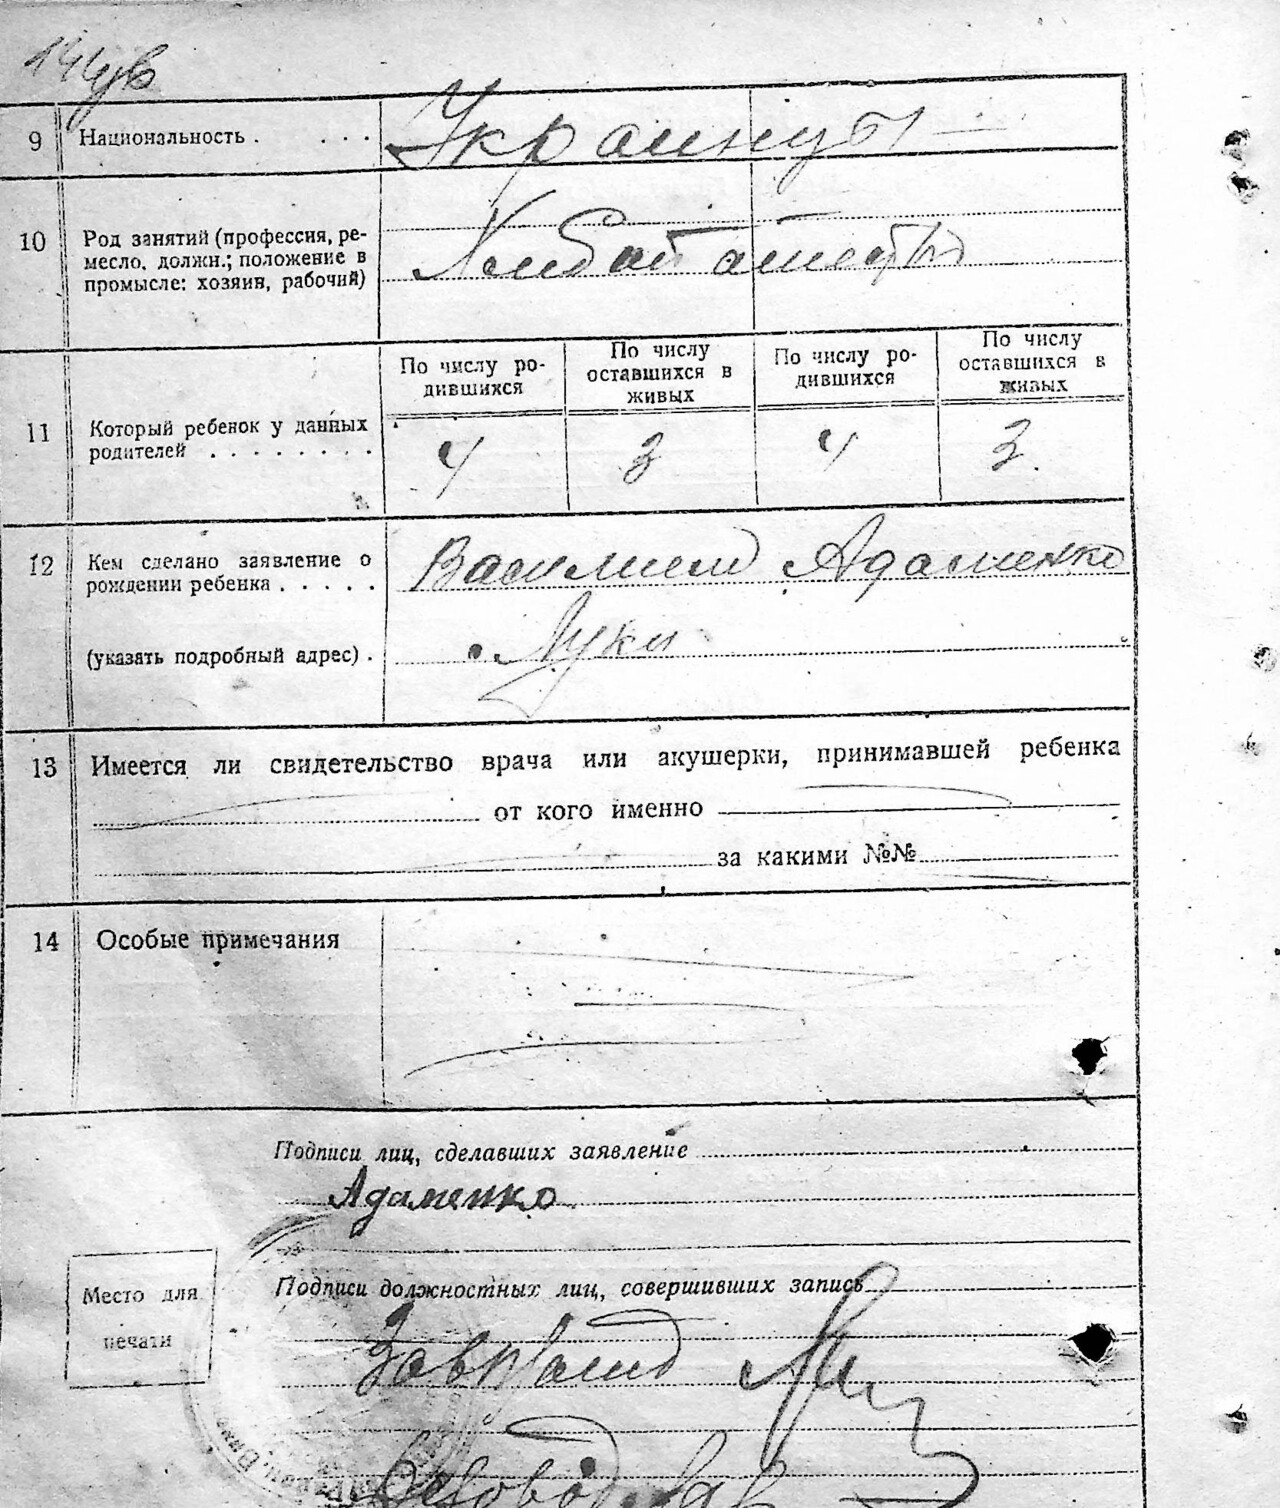 9 Национальность . . . . Украинцы
10 Род занятий (профессия, ре-
месло, должн.; положение в
промысле: хозяин, рабочий)
Хлебопашество
По числу ро-
дившихся
По числу
оставшихся в
живых
По числу ро-
дившихся
По числу
оставшихся в
живых
11 Который ребенок у данных
родителей . . . . . . . .
4 3 4 3
12 Кем сделано заявление о
рождении ребенка . . . . .
Адаменко
(указать подробный адрес) .
Луки
13 Имеется ли свидетельство врача или акушерки, принимавшей ребенка
от кого именно
за какими №№
14 Особые примечания
Подписи лиц, сделавших заявление
Адаменко
Подписи должностных лиц, совершивших запись
Место для
печати